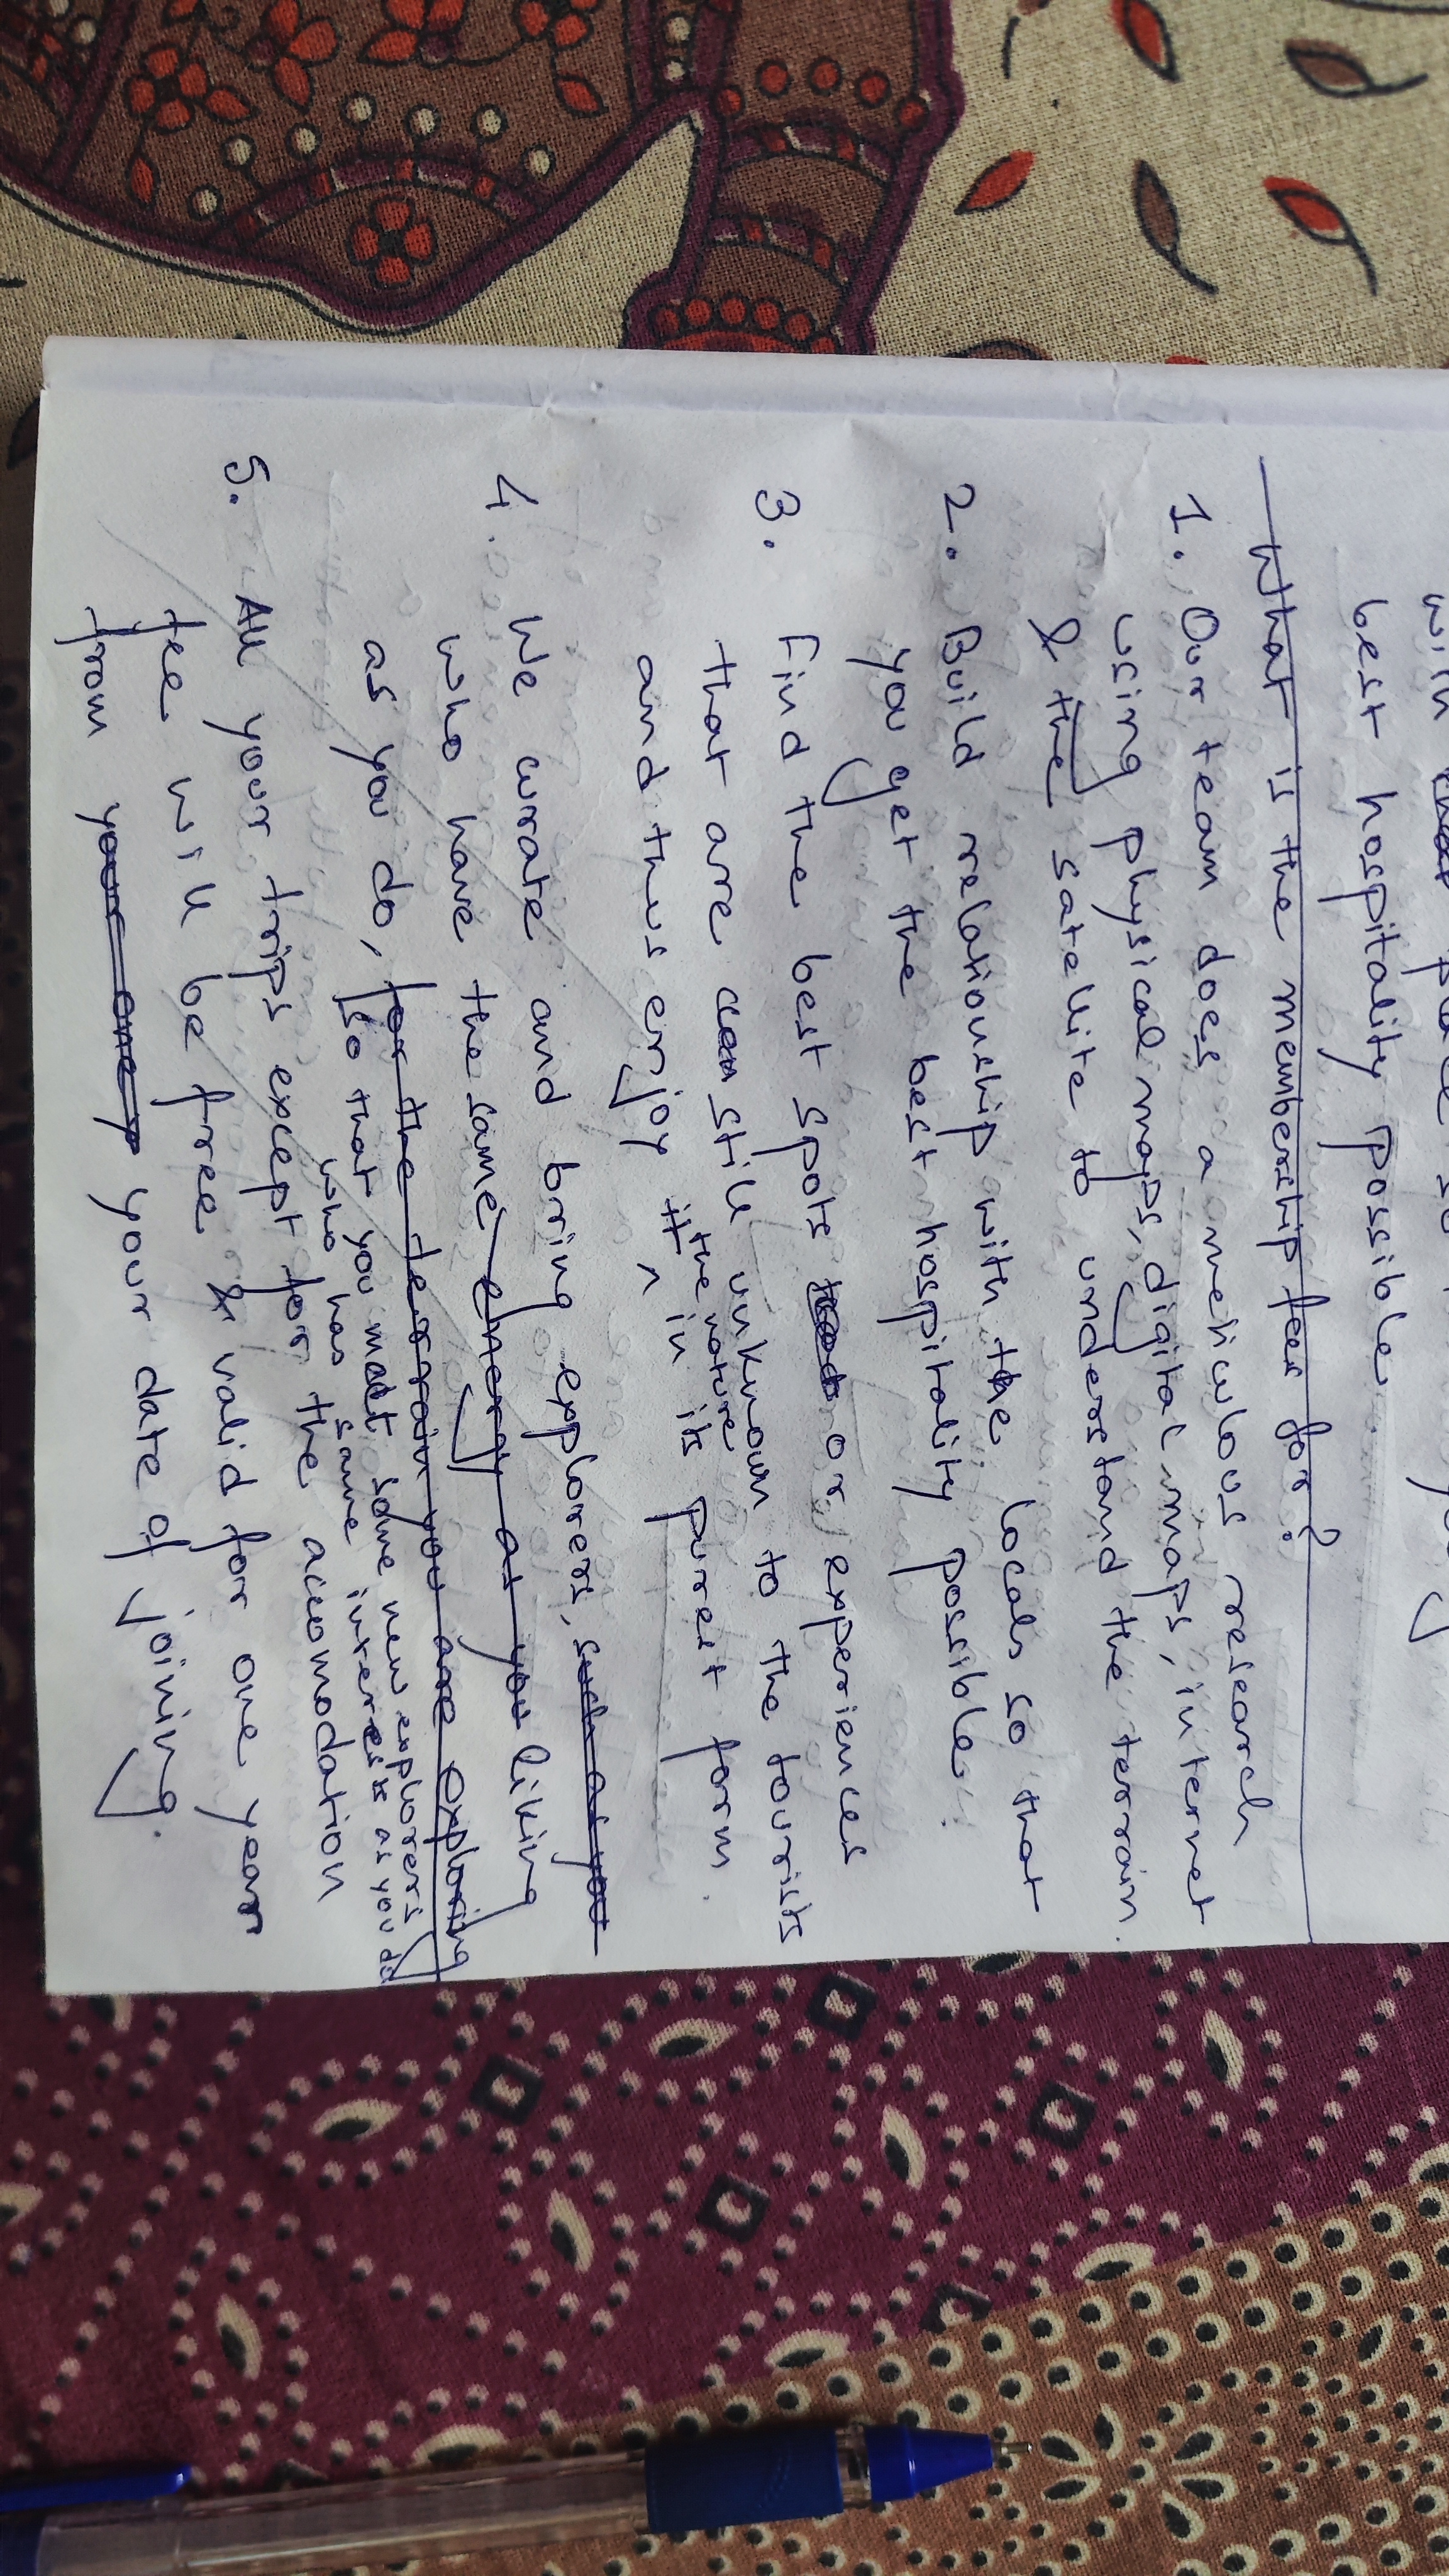 best hospitality possible
What is the membership fees for?
1. Our team does a meticulous research
using physical maps, digital maps, internet
& the satellite to understand the terrain.
2. Build relationship with the locals so that
you get the best hospitality possible.
3. Find the best spots or experiences
that are still unknown to the tourists
and thus enjoy the nature in its purest form.
4. We curate and bring explorers, such as you
who have the same energy as you liking
as you do, for the terrain you are exploring
so that you meet some new explorers
who has same interests as you do
5. All your trips except for the accomodation
fee will be free & valid for one year
from your date of joining.